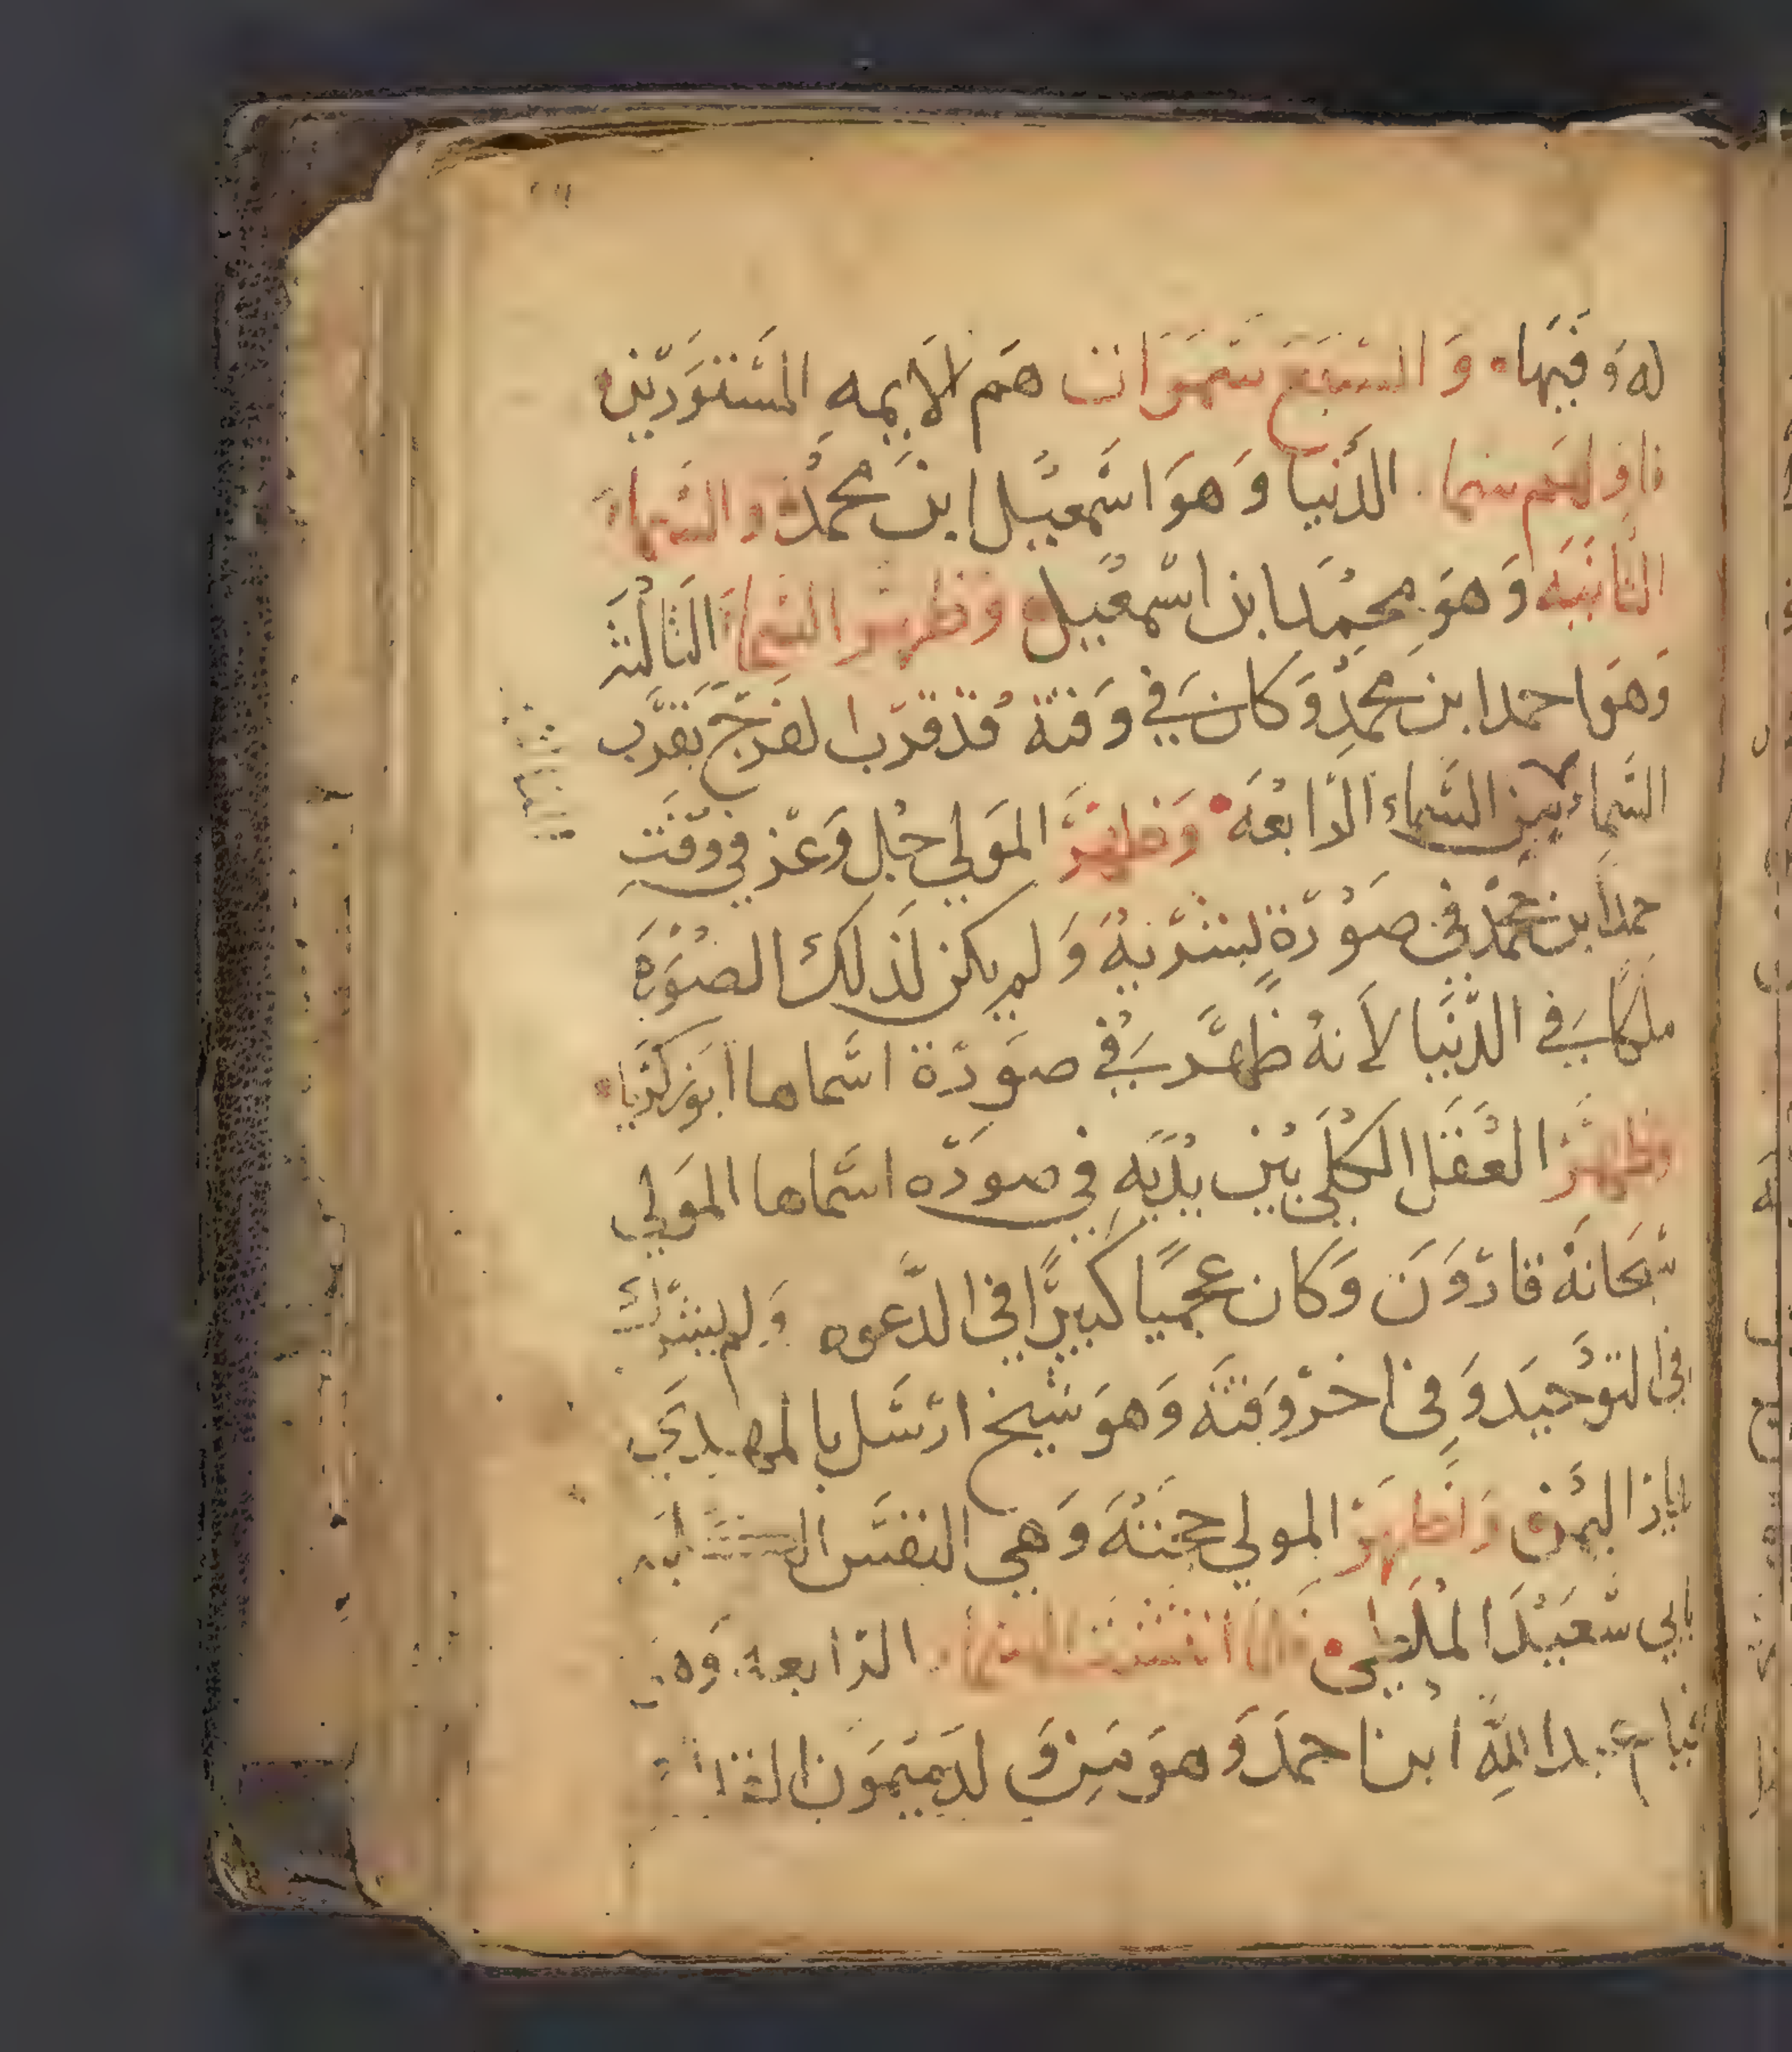 له وفيها والسبع سموات هم الايمه المستورين
فاولهم سما الدنيا وهو اسمعيل ابن محمد والسماء
الثانيه وهو محمد ابن اسمعيل وظهر السماء الثالثه
وهو احمد ابن محمد وكان في وقته قد قرب الفرج بقرب
السماء بين السماء الرابعه وظهر المولي جل وعز في وقت
احمد ابن محمد في صورة بشريه ولم يكن لذلك الصوره
ملكا في الدنيا لانه ظهر في صورة اسماها ابو زكريا
وظهر العقل الكلي بين يديه في صوره اسماها المولي
سبحانه قارون وكان عجميا كبيرا في الدعوه ولم يشرك
في التوحيد وفي اخر وقته وهو شيخ ارسل بالمهدي
اليمن واظهر المولي حجته وهي النفس
بابي سعيد الملطي فلما انتشرت السماء الرابعه وهي
عبد الله ابن احمد وهو من ولد ميمون القداح